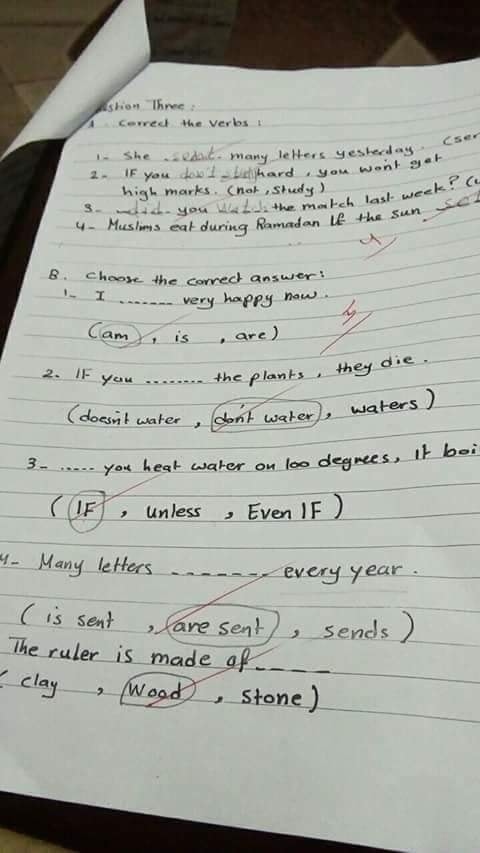 estion Three :
A. Correct the verbs :
1- She sent many letters yesterday. (sen
2- IF you don't study hard, you won't get
high marks. (not, study)
3- did you watch the match last week? (w
4- Muslims eat during Ramadan IF the sun set
B. Choose the correct answer:
1- I ....... very happy now.
(am, is, are)
2. IF you ........ the plants, they die.
(doesn't water, don't water, waters)
3- ..... you heat water on 100 degrees, it boi
(IF, unless, Even IF)
4- Many letters ------- every year.
(is sent, are sent, sends)
The ruler is made of----
( clay, wood, stone)